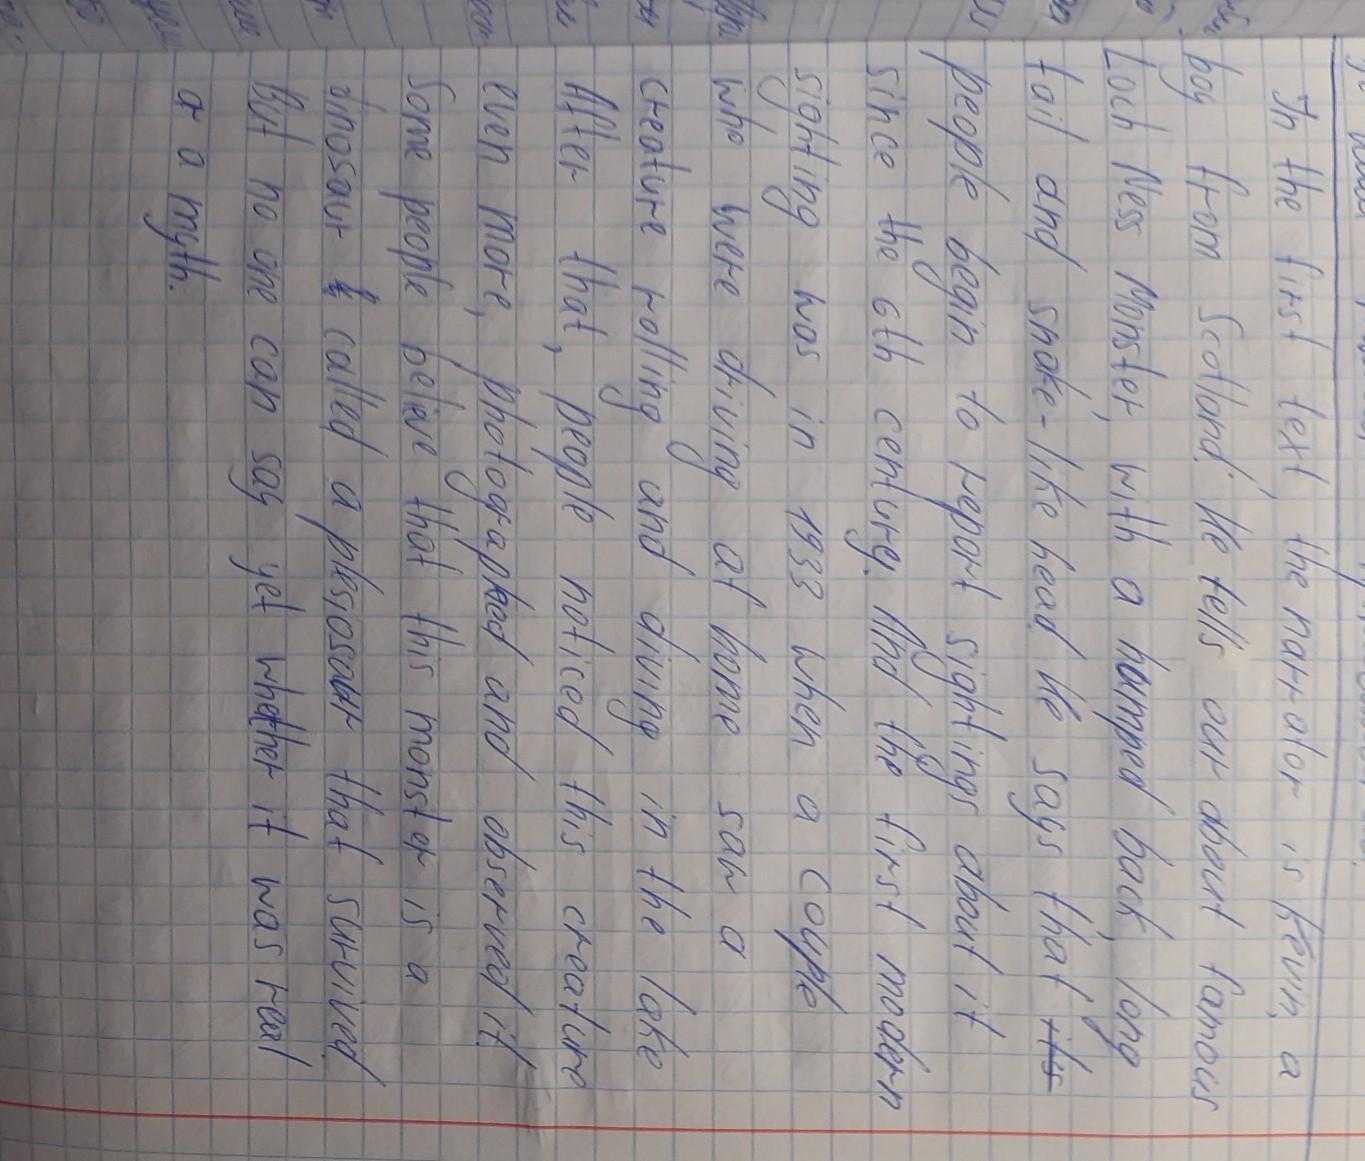 In the first text, the narrator is Kevin, a
boy from Scotland. He tells our about famous
Loch Ness Monster, with a humped back, long
tail and snake-like head. He says that its
people begin to report sightings about it
since the 6th century. And the first modern
sighting was in 1933 when a couple
who were driving at home saw a
creature rolling and diving in the lake
After that, people noticed this creature
even more, photographed and observed it.
Some people believe that this monster is a
dinosaur called a plesiosaur that survived.
But no one can say yet whether it was real
or a myth.